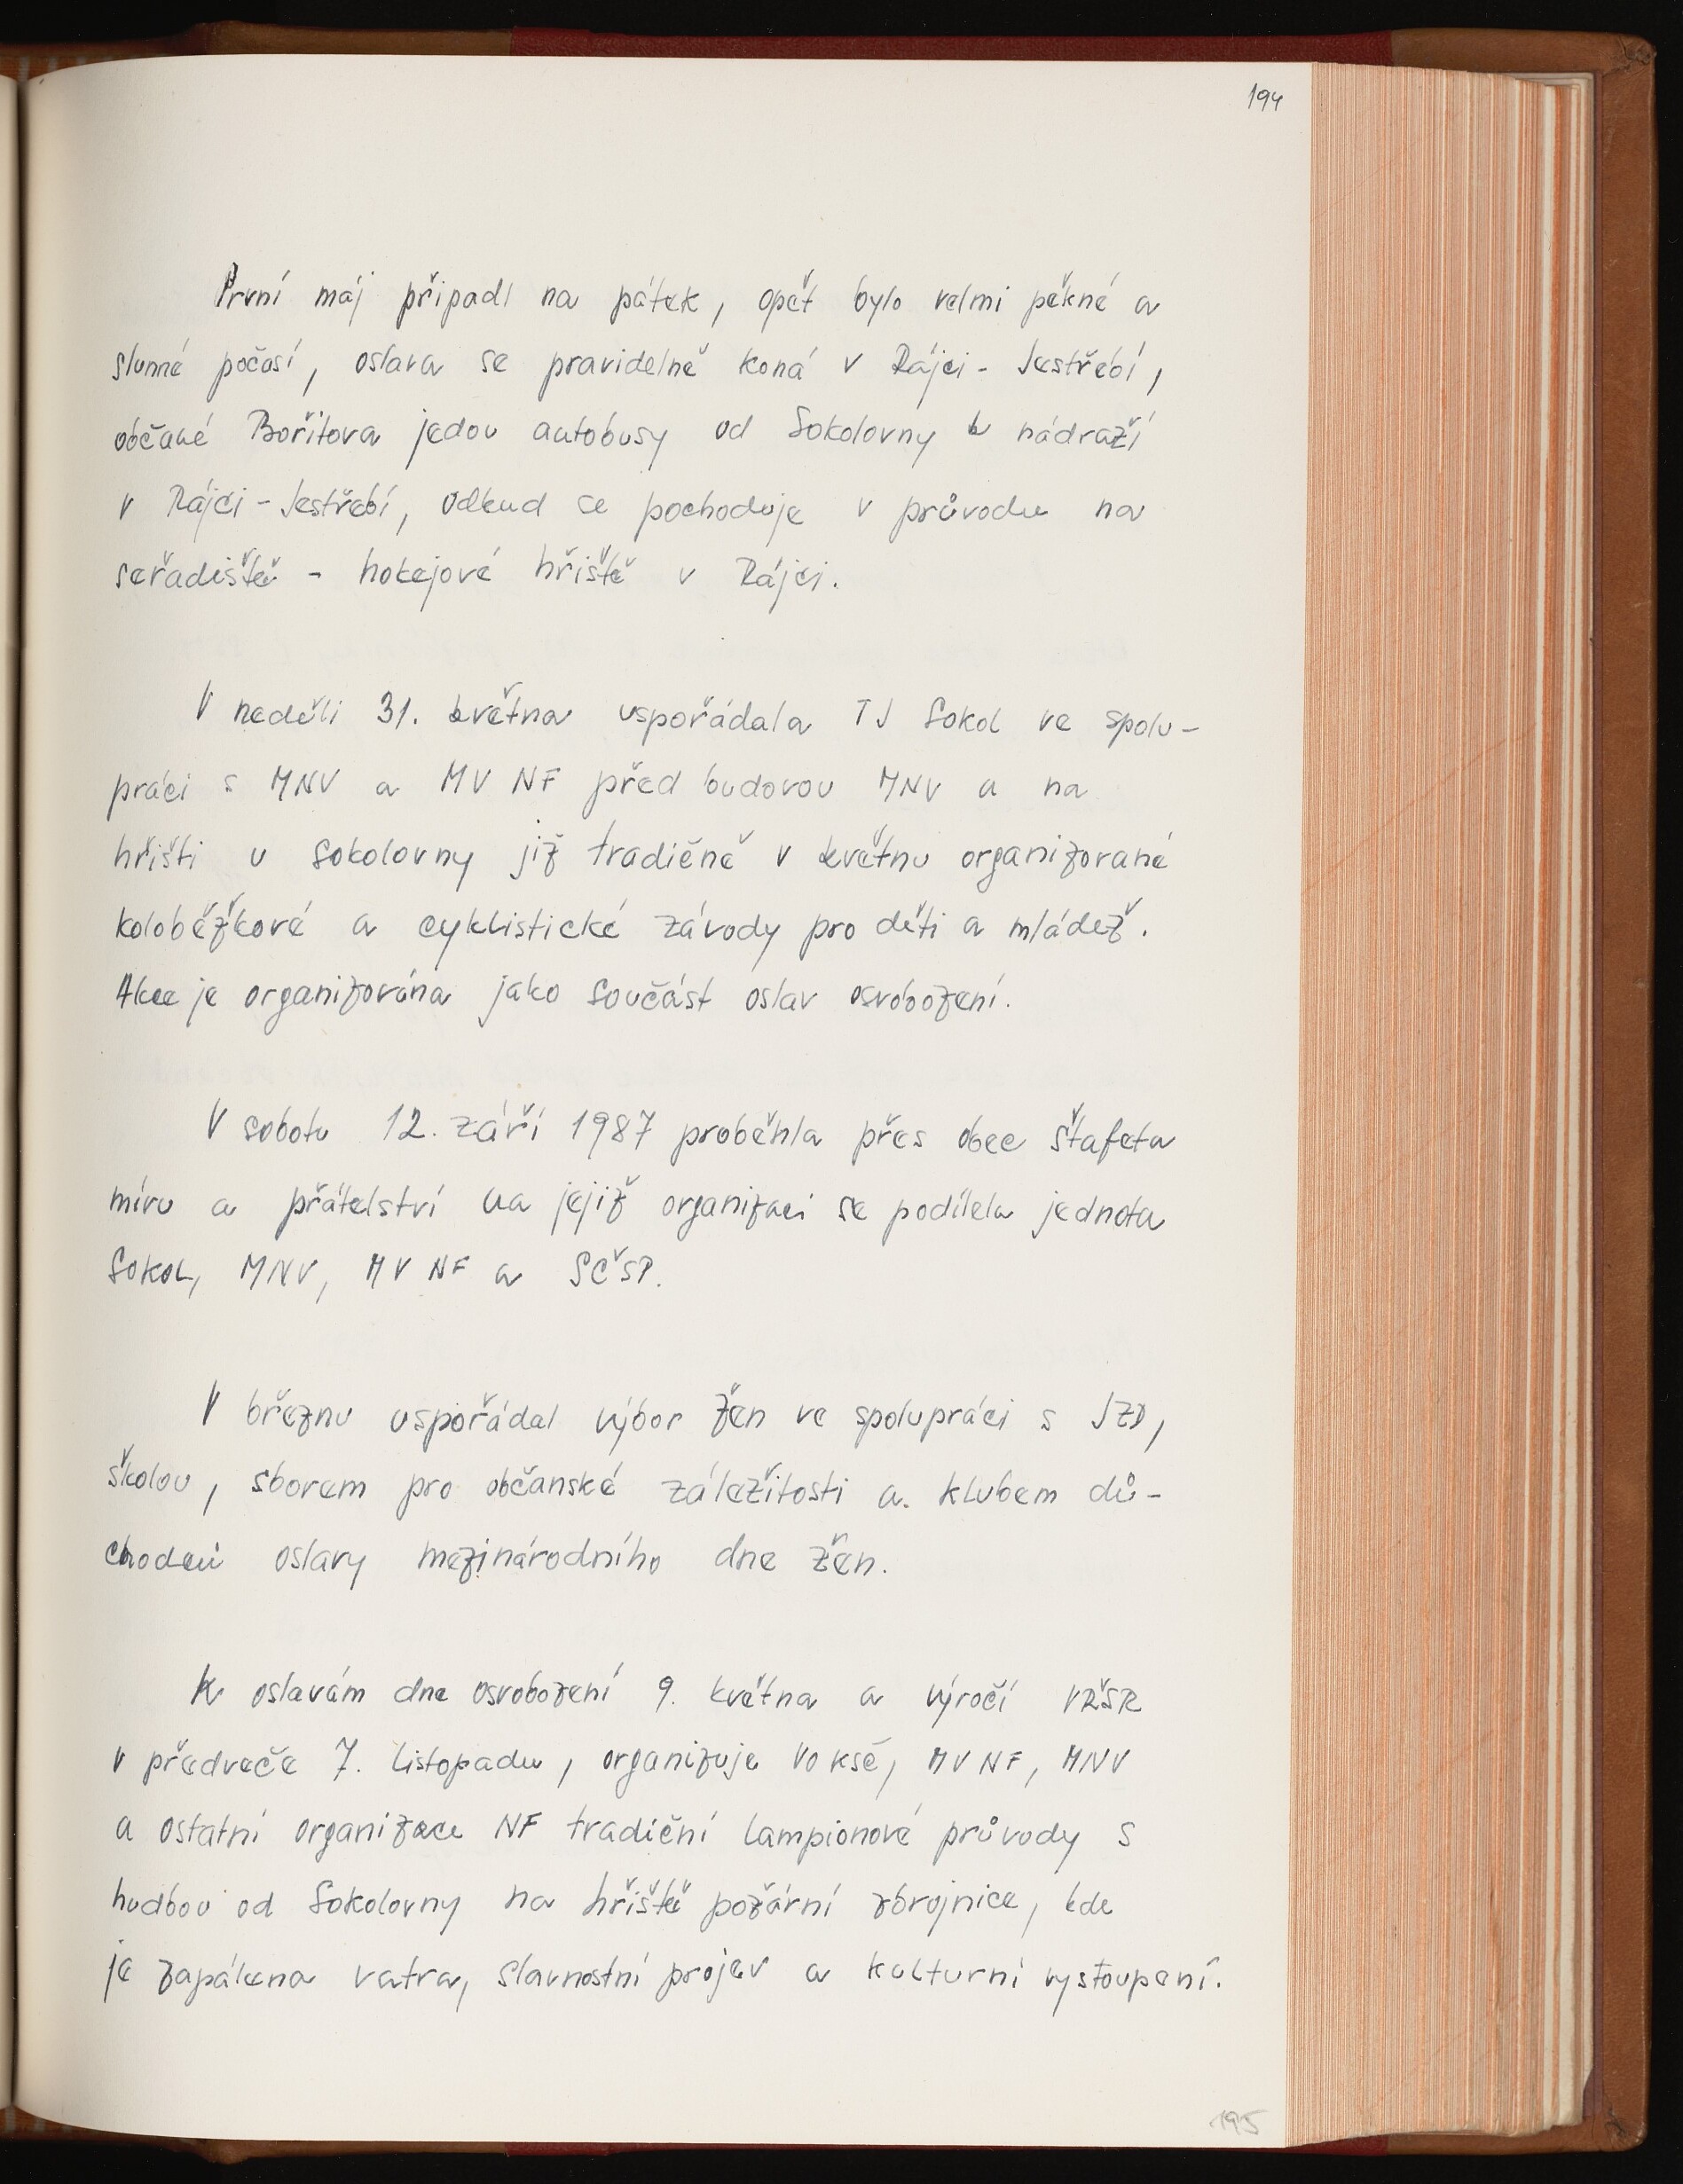 194
První máj připadl na pátek, opět bylo velmi pěkné a
slunné počasí, oslava se pravidelně koná v Rájci-Jestřebí,
občané Bořitova jedou autobusy od Sokolovny k nádraží
v Rájci-Jestřebí, odkud se pochoduje v průvodu na
seřadiště - hokejové hřiště v Rájci.
V neděli 31. května uspořádala TJ Sokol ve spolu-
práci s MNV a MV NF před budovou MNV a na
hřišti u Sokolovny již tradičně v květnu organizované
koloběžkové a cyklistické závody pro děti a mládež.
Akce je organizována jako součást oslav osvobození.
V sobotu 12. září 1987 proběhla přes obec štafeta
míru a přátelství na jejíž organizaci se podílela jednota
Sokol, MNV, MV NF a SČSP.
V březnu uspořádal výbor žen ve spolupráci s JZD,
školou, sborem pro občanské záležitosti a. klubem dů-
chodců oslavy mezinárodního dne žen.
K oslavám dne osvobození 9. května a výročí VŘSR
v předveče 7. listopadu, organizuje VO KSČ, MV NF, MNV
a ostatní organizace NF tradiční lampionové průvody s
hudbou od Sokolovny na hřiště požární zbrojnice, kde
je zapálena vatra, slavnostní projev a kulturní vystoupení.
195